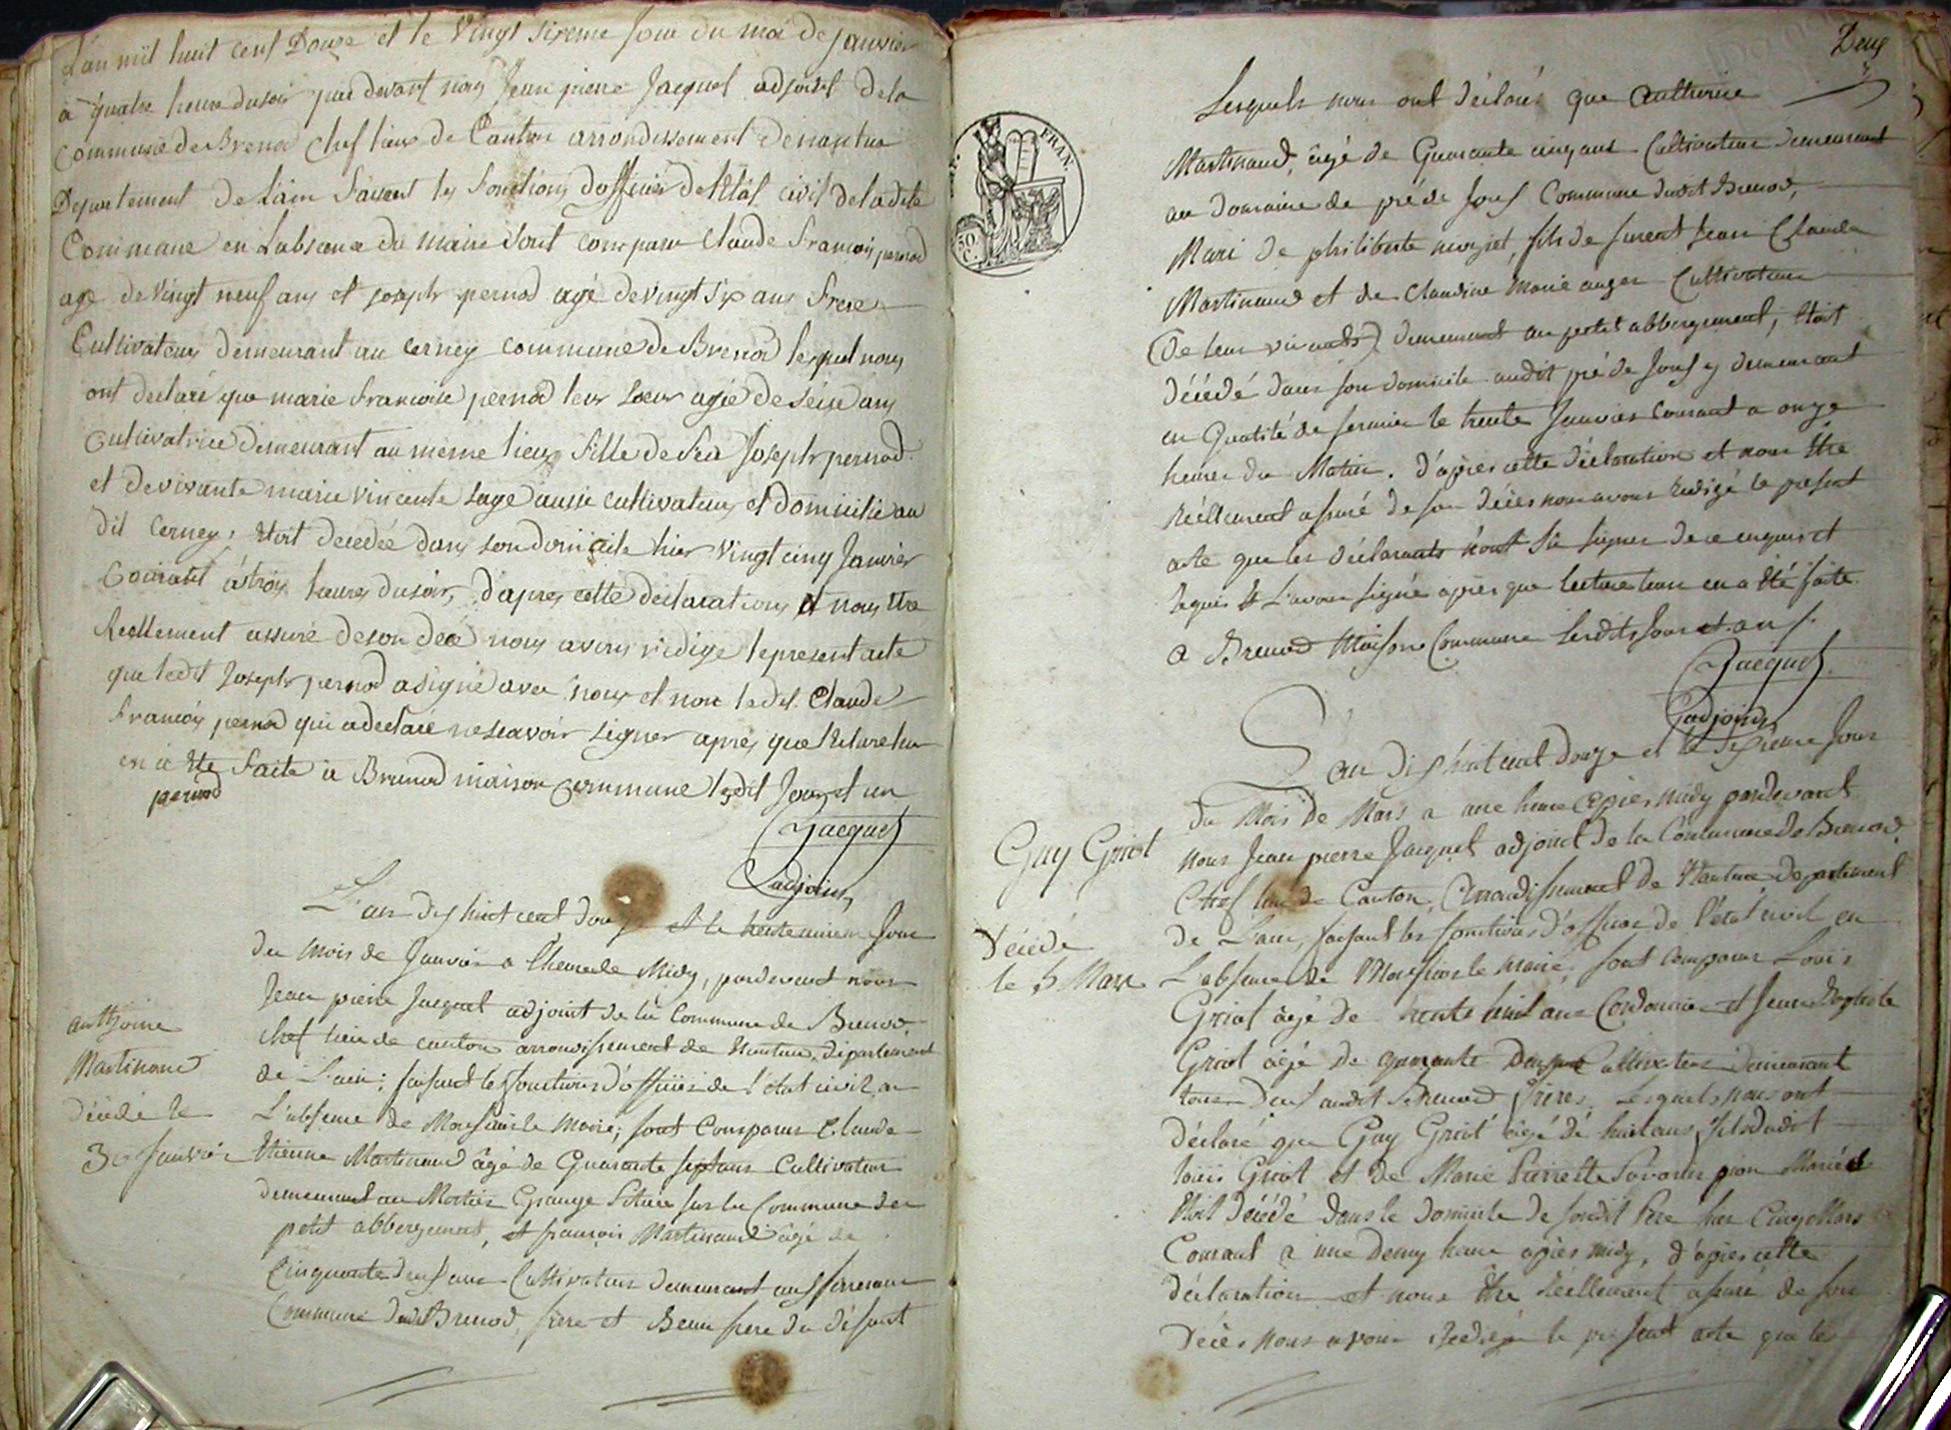 L'an mil huit cent Douze et le Vingt sixieme Jour du moi de Janvier
a quatre heure du soir par devant nous Jean pierre Jacquet adjoint de la
Commune de Brenod Chef lieux de Canton arrondissement de nantua
Departement de Lain faisant les fonctions d'officier de l'Etat civil de la dite
Commune en Labsence du maire sont comparu Claude François pernod
age de Vingt neuf ans et joseph pernod agé de vingt six ans frere
Cultivateurs demeurant au Cerney commune de Brenod lesquel nous
ont declaré que marie francoise pernod leur soeur agée de seise ans
Cultivatrice demeurant au meme lieux fille de feu Joseph pernod
et de vivante marie vincente sage aussi cultivateurs et domicilié au
dit Cerney, etoit decedée dans son domicile hier vingt cinq Janvier
Courant à trois heures du soir, d'apres cette declarations et nous etre
Reellement assuré de son décé nous avons rédigé le present acte
que ledit Joseph pernod a signé avec nous et non le dit Claude
François pernod qui a declaré ne scavoir signer après que lecture leur
en à eté faite à Brenod maison commune ledit Jour et an
pernod
Jacquet
adjoint
L'an dix huit cent douze et le trente unieme Jour
du mois de Janvier a l'heure de Midy, pardevant nous
Jean pierre Jacquet adjoint de la Commune de Brenod,
chef lieu de canton arrondissement de Nantua, département
de L'ain; faisant les fonctions d'officier de l'état civil en
L'absence de Monsieur le Maire; sont Comparus Claude
anthoine
Martinand
Décédé le
30 Janvier
Etienne Martinand âgé de Quarante sept ans Cultivateur
demeurant au Mortier Grange Située sur la Commune du
petit abbergement, et françois Martinand âgé de
Cinquante deux ans Cultivateur demeurant aux
Commune dudit Brenod, frere et Beau frere du défunt
Deux
Lesquels nous ont déclaré que Anthoine
Martinaud, âgé de Quarante cinq ans Cultivateur demeurant
au Domaine de pré de Jouf Commune dudit Brenod,
Mari de philiberte, fils de furent Jean Claude
Martinaud et de Claudine Marie auger Cultivateurs
(de leur vivants) demeurant au petit abbergement, était
décédé dans son domicile audit pré de Jouf y demeurant
en Qualité de fermier le trente Janvier Courant a onze
heures du Matin. D'après cette déclaration et nous être
Réellement assuré de son décès nous avons Redigé le présent
acte que les déclarants n'ont Sû signer de ce enquis et
Requis et L'avons signé après que lecture leur en a été faite
a Brenod Maison Commune lesdits Jour et an
Jacquet
adjoint
FRAN.
50 C.
L'an Dix huit cent douze et le Sixieme Jour
du Mois de Mars a une heure après midy pardevant
Guy Griot
Décédé
le 5 Mars
Nous Jean pierre Jacquet adjoint de la Commune de Brenod
Chef lieu de Canton, Arrondissement de Nantua département
de L'ain, faisant les fonctions d'officier de l'état civil en
L'absence de Monsieur le Maire, sont Comparus Louis
Griot âgé de trente huit ans Cordonnier et Jean Baptiste
Griot âgé de quarante Deux ans Cultivateur demeurant
tous Deux audit Brenod frères, Lesquels nous ont
déclaré que Guy Griot âgé de huit ans, fils dudit
louis Griot et de Marie Pierrette Savarin pion Mariés
était Décédé dans le Domicile de sondit Pere hier Cinq Mars
Courant a une Demy heure après midy, d'après cette
déclaration et nous être Réellement assuré de son
Décès Nous avons Redigé le présent acte que les